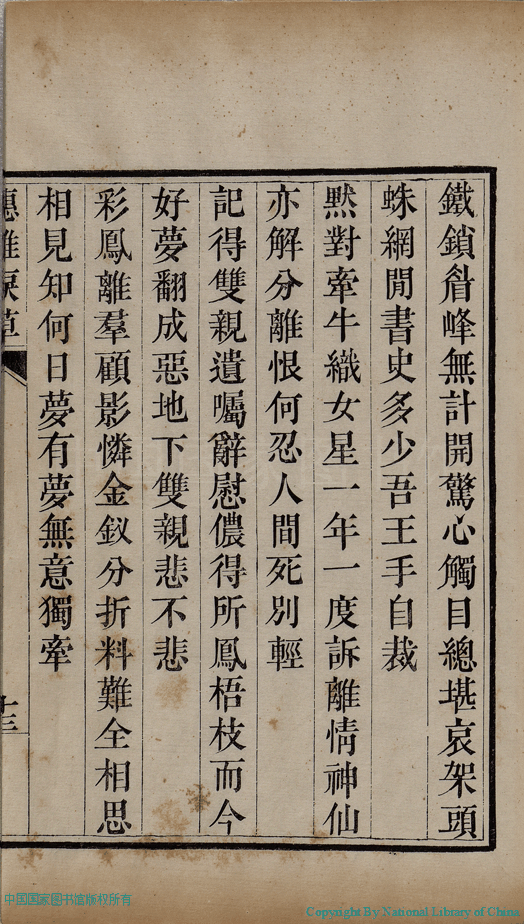 鐵鎖眉峰無計開驚心觸目總堪哀架頭
蛛網閒書史多少吾王手自裁
黙對牽牛織女星一年一度訴離情神仙
亦解分離恨何忍人間死別輕
記得雙親遺囑辭慰儂得所鳳梧枝而今
好夢翻成惡地下雙親悲不悲
彩鳳離羣顧影憐金釵分折料難全相思
相見知何日夢有夢無意獨牽
十三
中国国家图书馆版权所有
Copyright By National Library of China